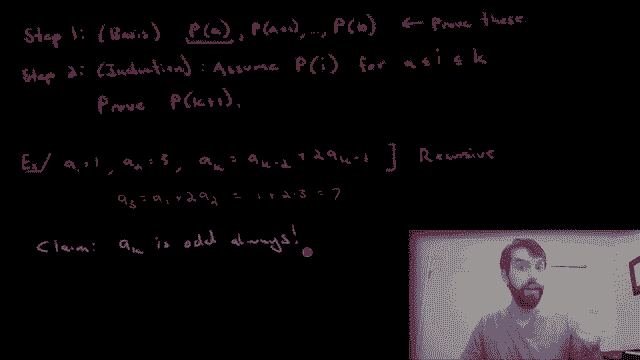 Step 1: (Basis) P(a), P(a+1), ..., P(b) ← Prove these
Step 2: (Induction): Assume P(i) for a ≤ i ≤ k
Prove P(k+1).
Ex/ a₁=1, a₂=3, aₖ = aₖ₋₂ + 2aₖ₋₁ ] Recursive
a₃ = a₁ + 2a₂ = 1 + 2·3 = 7
Claim: aₙ is odd always!